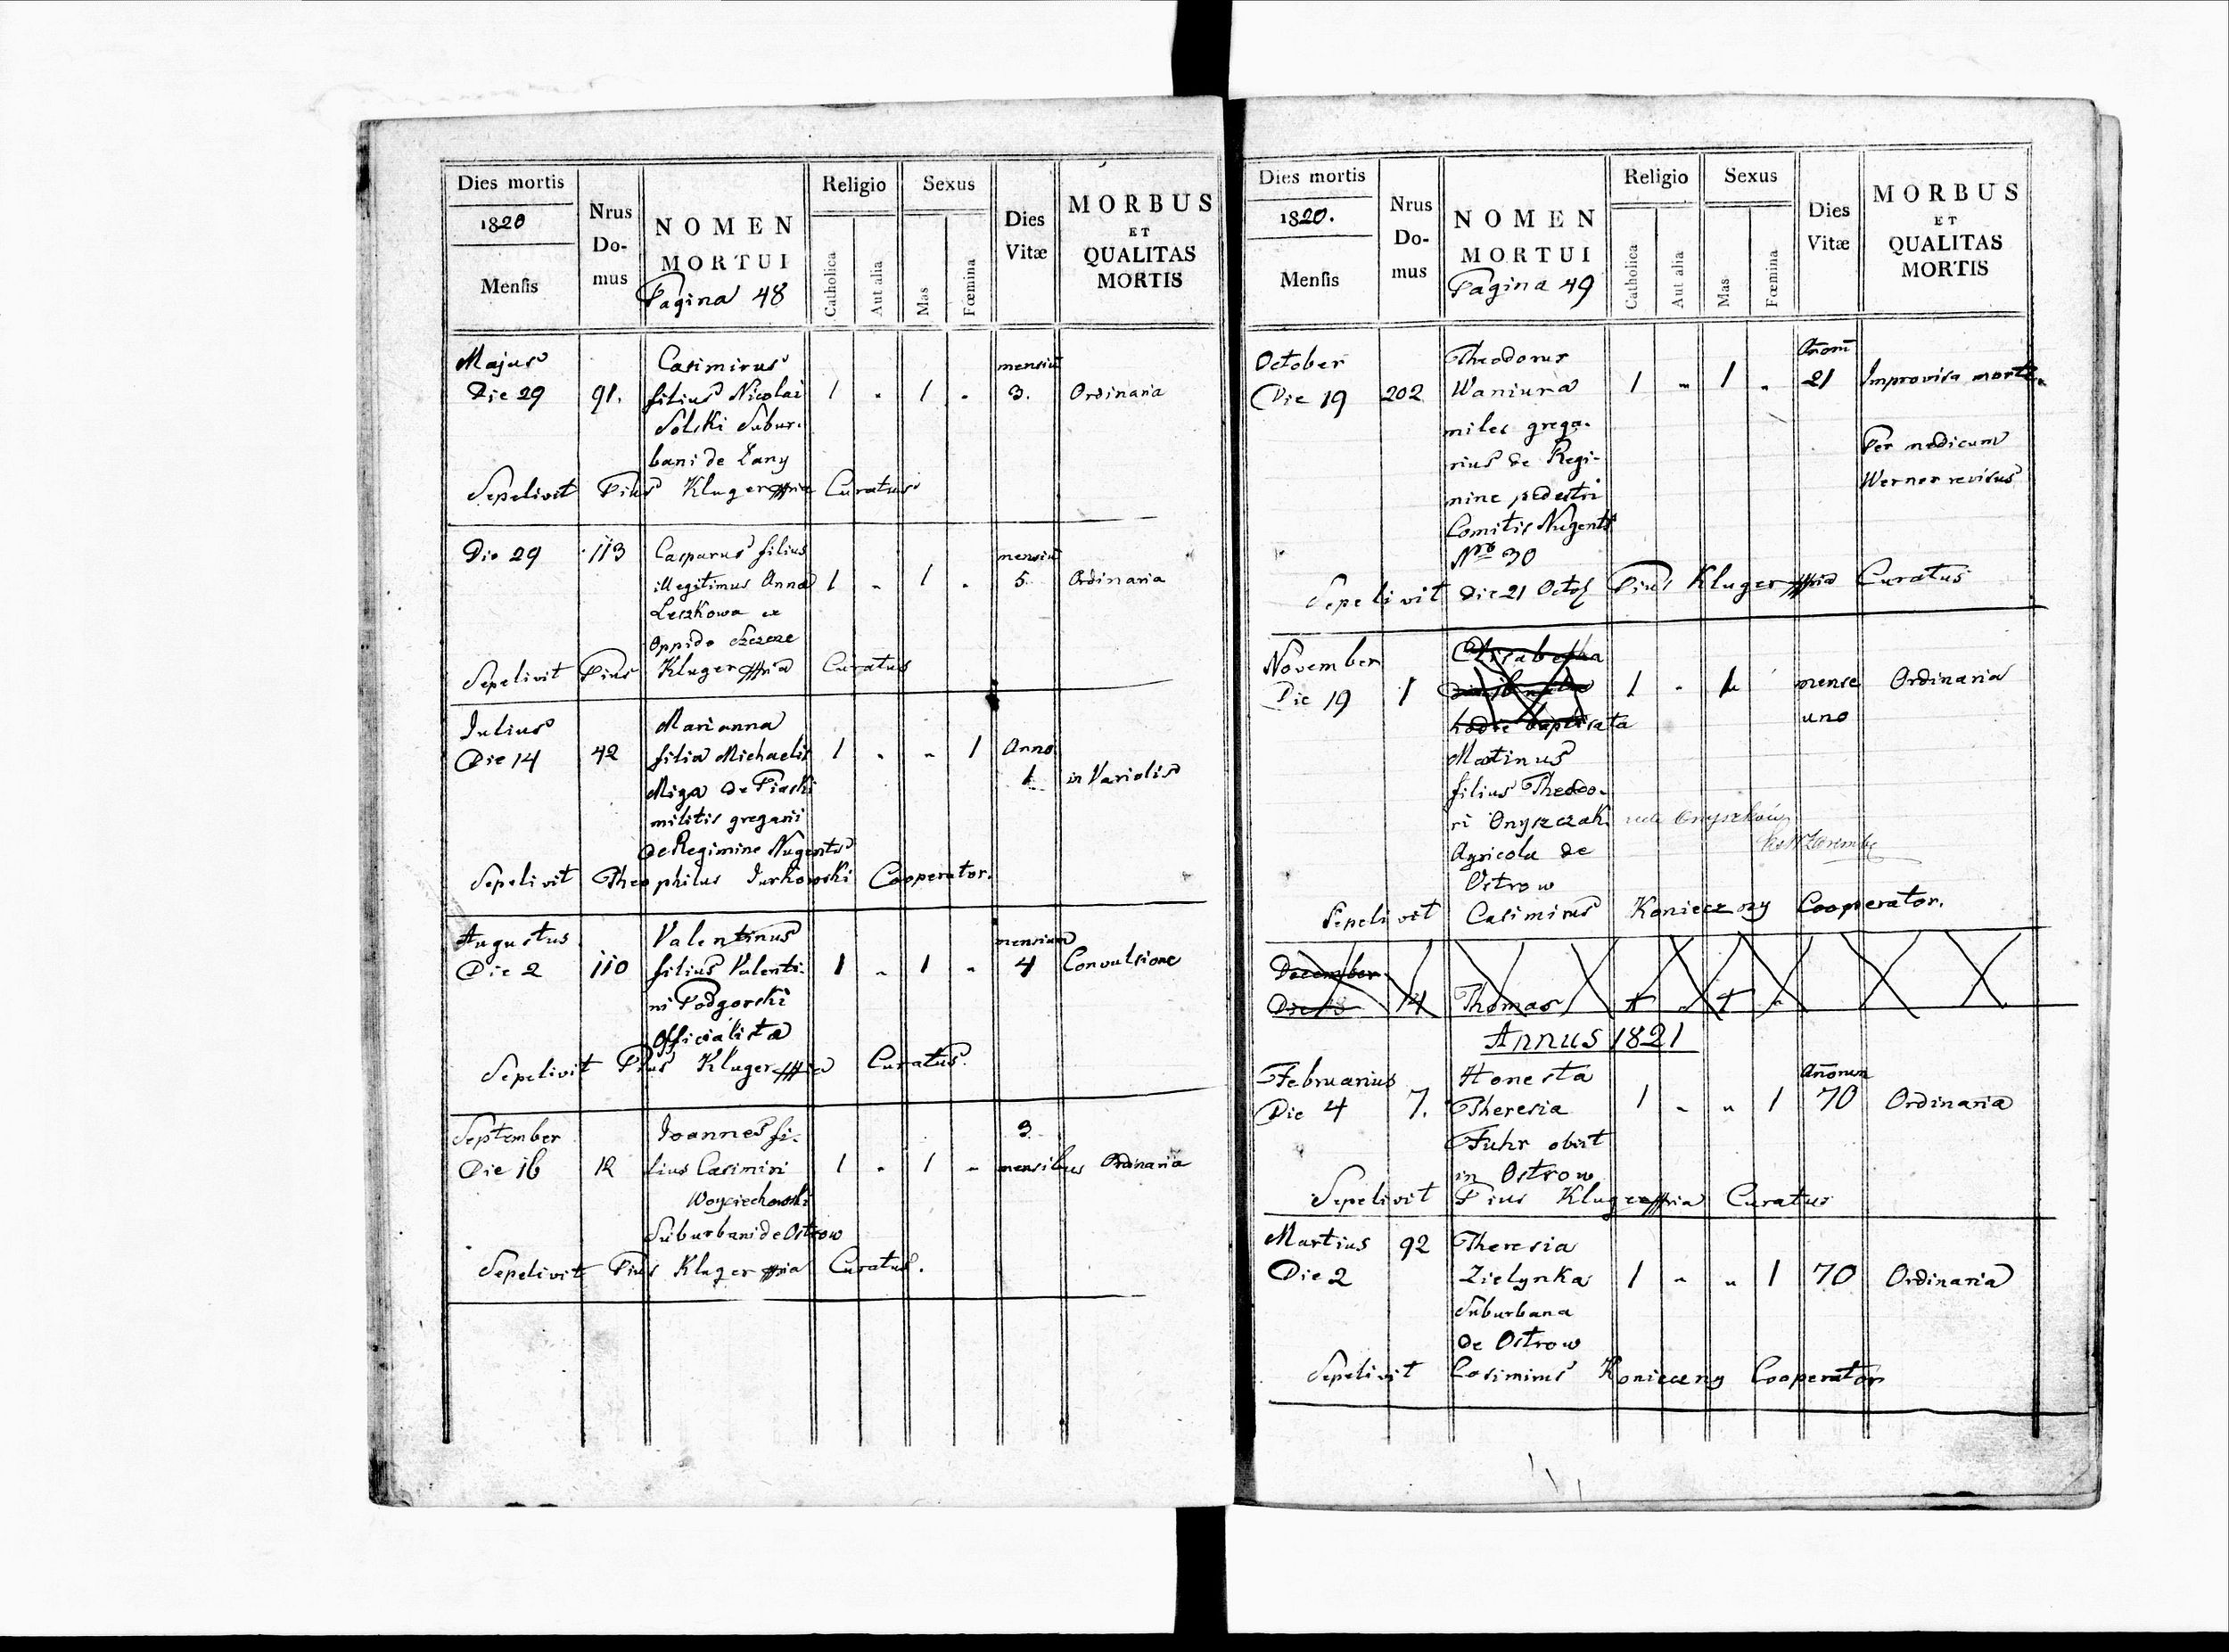 Dies mortis
1820
Mensis
Nrus
Do-
mus
NOMEN
MORTUI
Pagina 48
Religio
Catholica
Aut alia
Sexus
Mas
Fœmina
Dies
Vitæ
MORBUS
ET
QUALITAS
MORTIS
Majus Casimirus mensiū
Die 29 91. filius Nicolai 1 " 1 " 3. Ordinaria
Solski Subur-
bani de Łany
Sepelivit Pius Kluger mpria Curatus
Die 29 113 Casparus filius mensiū
illegitimus Anna 1 " 1 " 5 Ordinaria
Leszkowa ex
Oppido Szczerze
Sepelivit Pius Kluger mpria Curatus
Julius Marianna
Die 14 42 filia Michaelis 1 " " 1 Anno
Miga de Piaski 1 in Variolis
militis gregarii
de Regimine Nugents
Sepelivit Theophilus Jurkowski Cooperator.
Augustus Valentinus mensium
Die 2 110 filius Valenti- 1 " 1 " 4 Convulsione
ni Podgorski
Officialista
Sepelivit Pius Kluger mpria Curatus.
September Joannes fi- 3
Die 16 12 lius Casimiri 1 " 1 " mensibus Ordinaria
Woyciechowski
Suburbani de Ostrow
Sepelivit Pius Kluger mpria Curatus.
Dies mortis
1820.
Mensis
Nrus
Do-
mus
NOMEN
MORTUI
Pagina 49
Religio
Catholica
Aut alia
Sexus
Mas
Fœmina
Dies
Vitæ
MORBUS
ET
QUALITAS
MORTIS
October Theodorus Anorū
Die 19 202 Waniura 1 " 1 " 21 Improvisa morte.
miles grega-
rius de Regi- Per medicum
mine pedestri Werner revisus
Comitis Nugents
Nro 30
Sepelivit Die 21 Octob Pius Kluger mpria Curatus
November Elisabetha
Die 19 1 1 " 1 mense Ordinaria
hodie baptisata uno
Martinus
filius Theodo-
ri Onyszczak recte Onyszków
Agricola de
Ostrow
Sepelivit Casimirus Konieczny Cooperator.
December
Die 14 Thomas 1 " 1 "
Annus 1821
Februarius Honesta Anorum
Die 4 7. Theresia 1 " " 1 70 Ordinaria
Fuhr obiit
in Ostrow
Sepelivit Pius Kluger mpria Curatus
Martius 92 Theresia
Die 2 Zielynka 1 " " 1 70 Ordinaria
Suburbana
de Ostrow
Sepelivit Casimirus Konieczny Cooperator